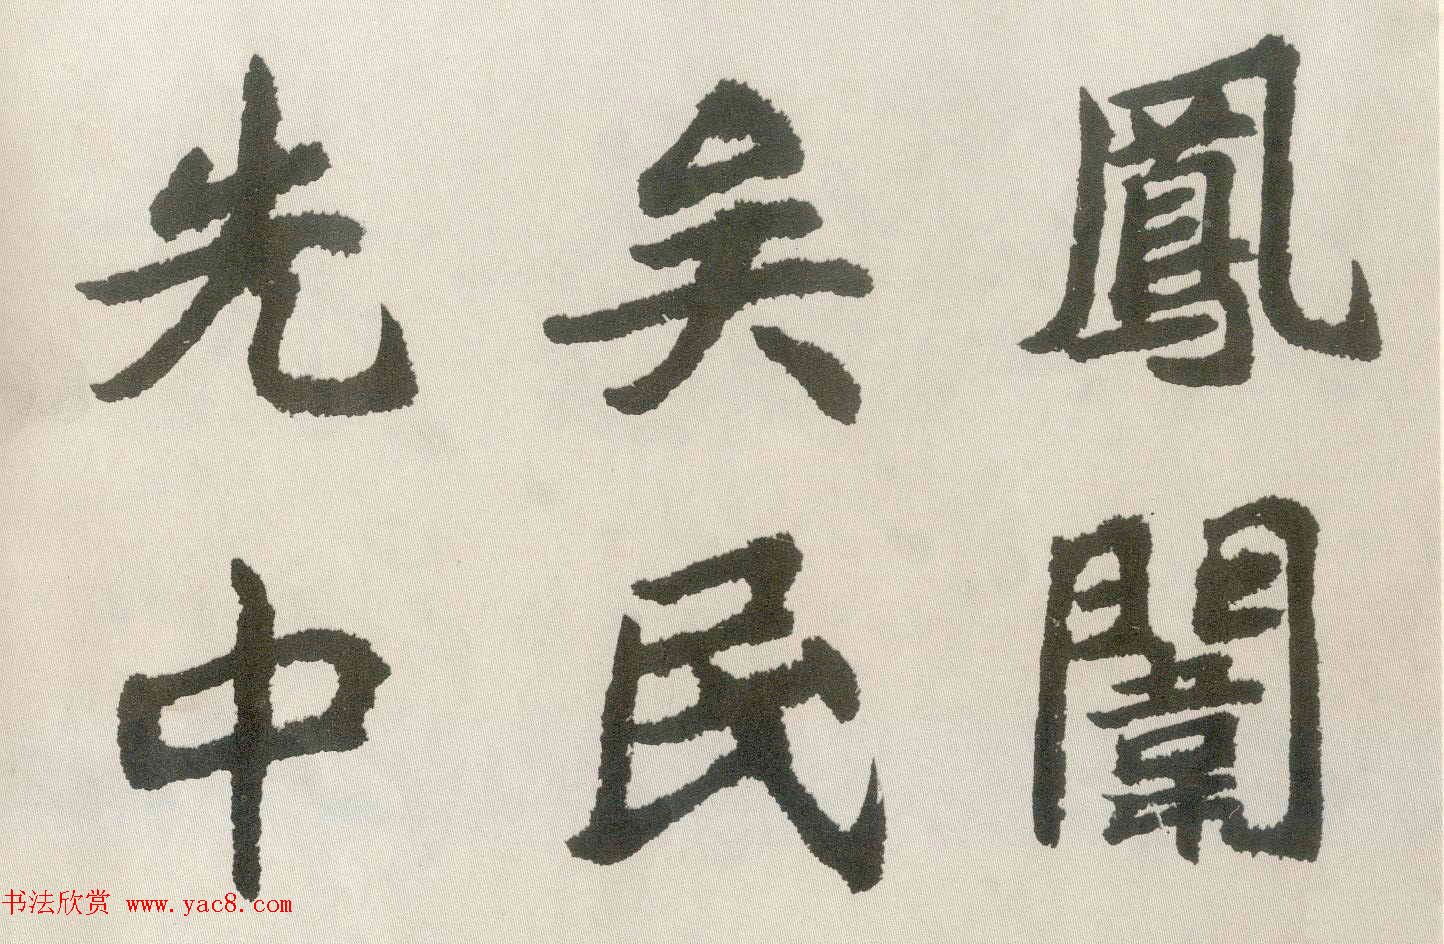 鳳闈
矣民
先中
书法欣赏 www.yac8.com